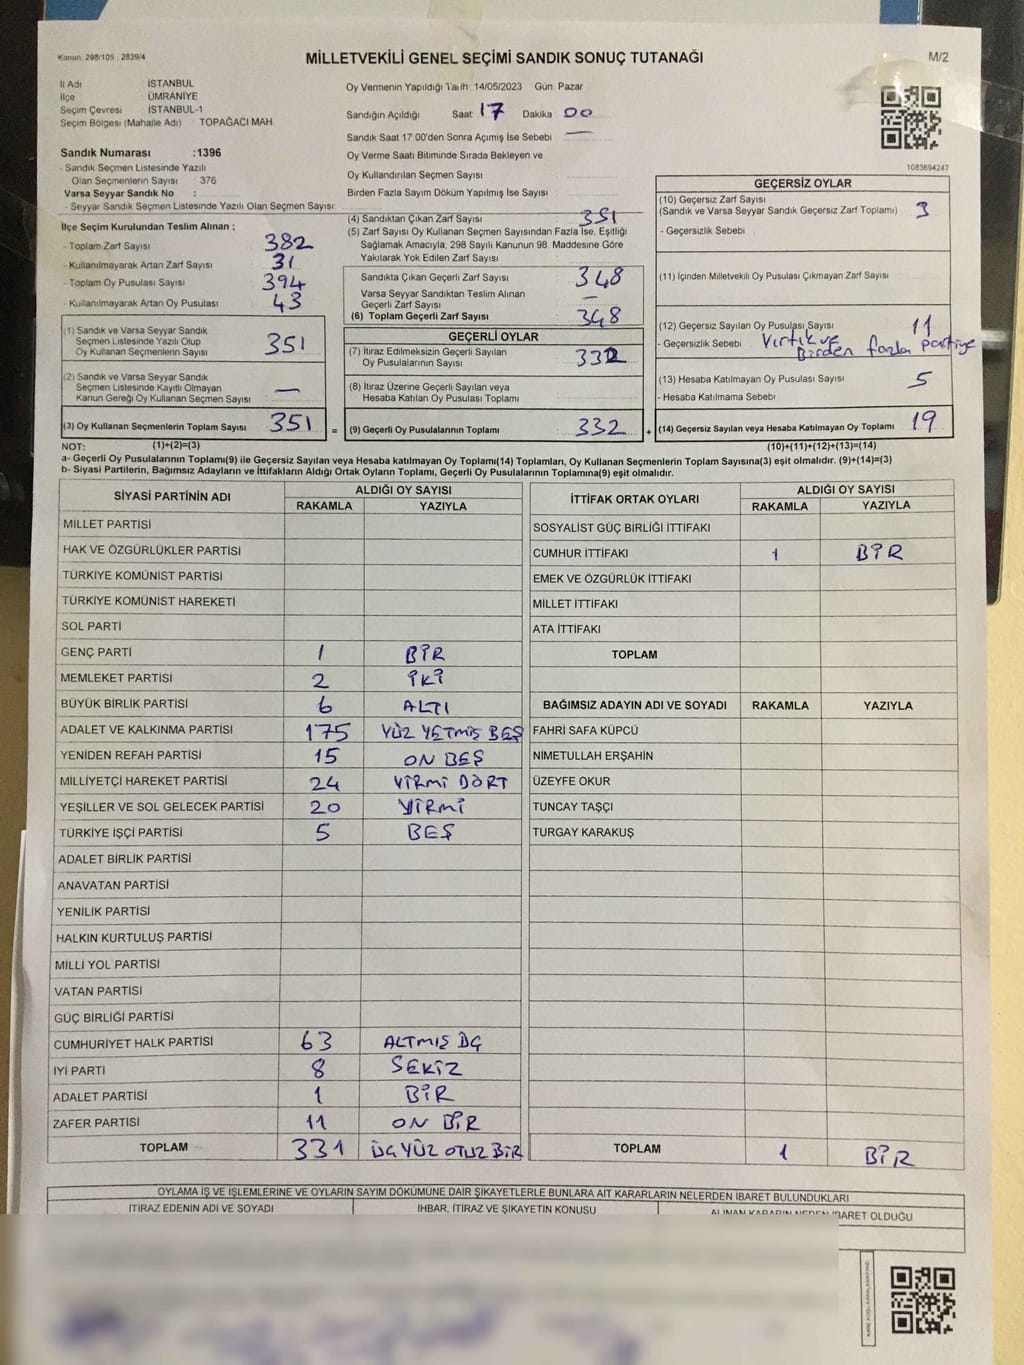 Kanun: 298/105 , 2839/4
MİLLETVEKİLİ GENEL SEÇİMİ SANDIK SONUÇ TUTANAĞI
M/2
İl Adı İSTANBUL
İlçe ÜMRANİYE
Seçim Çevresi İSTANBUL-1
Seçim Bölgesi (Mahalle Adı) TOPAĞACI MAH.
Oy Vermenin Yapıldığı Tarih :14/05/2023 Gün: Pazar
Sandığın Açıldığı Saat: 17 Dakika 00
Sandık Saat 17:00'den Sonra Açımış İse Sebebi —
Oy Verme Saati Bitiminde Sırada Bekleyen ve
Oy Kullandırılan Seçmen Sayısı
Birden Fazla Sayım Döküm Yapılmış İse Sayısı
1083694247
Sandık Numarası :1396
- Sandık Seçmen Listesinde Yazılı
Olan Seçmenlerin Sayısı : 376
Varsa Seyyar Sandık No :
- Seyyar Sandık Seçmen Listesinde Yazılı Olan Seçmen Sayısı:
İlçe Seçim Kurulundan Teslim Alınan ;
- Toplam Zarf Sayısı 382
- Kullanılmayarak Artan Zarf Sayısı 31
- Toplam Oy Pusulası Sayısı 394
- Kullanılmayarak Artan Oy Pusulası 43
(1) Sandık ve Varsa Seyyar Sandık
Seçmen Listesinde Yazılı Olup
Oy Kullanan Seçmenlerin Sayısı 351
(2) Sandık ve Varsa Seyyar Sandık
Seçmen Listesinde Kayıtlı Olmayan
Kanun Gereği Oy Kullanan Seçmen Sayısı —
(3) Oy Kullanan Seçmenlerin Toplam Sayısı 351 =
(4) Sandıktan Çıkan Zarf Sayısı 351
(5) Zarf Sayısı Oy Kullanan Seçmen Sayısından Fazla İse, Eşitliği
Sağlamak Amacıyla, 298 Sayılı Kanunun 98. Maddesine Göre
Yakılarak Yok Edilen Zarf Sayısı
Sandıkta Çıkan Geçerli Zarf Sayısı 348
Varsa Seyyar Sandıktan Teslim Alınan
Geçerli Zarf Sayısı —
(6) Toplam Geçerli Zarf Sayısı 348
GEÇERLİ OYLAR
(7) İtiraz Edilmeksizin Geçerli Sayılan
Oy Pusulalarının Sayısı 332
(8) İtiraz Üzerine Geçerli Sayılan veya
Hesaba Katılan Oy Pusulası Toplamı
(9) Geçerli Oy Pusulalarının Toplamı 332 +
GEÇERSİZ OYLAR
(10) Geçersiz Zarf Sayısı
(Sandık ve Varsa Seyyar Sandık Geçersiz Zarf Toplamı) 3
- Geçersizlik Sebebi :
(11) İçinden Milletvekili Oy Pusulası Çıkmayan Zarf Sayısı
(12) Geçersiz Sayılan Oy Pusulası Sayısı 11
- Geçersizlik Sebebi Yırtık ve
Birden fazla partiye
(13) Hesaba Katılmayan Oy Pusulası Sayısı 5
- Hesaba Katılmama Sebebi
(14) Geçersiz Sayılan veya Hesaba Katılmayan Oy Toplamı 19
NOT: (1)+(2)=(3) (10)+(11)+(12)+(13)=(14)
a- Geçerli Oy Pusulalarının Toplamı(9) ile Geçersiz Sayılan veya Hesaba katılmayan Oy Toplamı(14) Toplamları, Oy Kullanan Seçmenlerin Toplam Sayısına(3) eşit olmalıdır. (9)+(14)=(3)
b- Siyasi Partilerin, Bağımsız Adayların ve İttifakların Aldığı Ortak Oyların Toplamı, Geçerli Oy Pusulalarının Toplamına(9) eşit olmalıdır.
SİYASİ PARTİNİN ADI ALDIĞI OY SAYISI
RAKAMLA YAZIYLA
MİLLET PARTİSİ
HAK VE ÖZGÜRLÜKLER PARTİSİ
TÜRKİYE KOMÜNİST PARTİSİ
TÜRKİYE KOMÜNİST HAREKETİ
SOL PARTİ
GENÇ PARTİ 1 BİR
MEMLEKET PARTİSİ 2 İKİ
BÜYÜK BİRLİK PARTİSİ 6 ALTI
ADALET VE KALKINMA PARTİSİ 175 YÜZ YETMİŞ BEŞ
YENİDEN REFAH PARTİSİ 15 ON BEŞ
MİLLİYETÇİ HAREKET PARTİSİ 24 YİRMİ DÖRT
YEŞİLLER VE SOL GELECEK PARTİSİ 20 YİRMİ
TÜRKİYE İŞÇİ PARTİSİ 5 BEŞ
ADALET BİRLİK PARTİSİ
ANAVATAN PARTİSİ
YENİLİK PARTİSİ
HALKIN KURTULUŞ PARTİSİ
MİLLİ YOL PARTİSİ
VATAN PARTİSİ
GÜÇ BİRLİĞİ PARTİSİ
CUMHURİYET HALK PARTİSİ 63 ALTMIŞ ÜÇ
İYİ PARTİ 8 SEKİZ
ADALET PARTİSİ 1 BİR
ZAFER PARTİSİ 11 ON BİR
TOPLAM 331 ÜÇ YÜZ OTUZ BİR
İTTİFAK ORTAK OYLARI ALDIĞI OY SAYISI
RAKAMLA YAZIYLA
SOSYALİST GÜÇ BİRLİĞİ İTTİFAKI
CUMHUR İTTİFAKI 1 BİR
EMEK VE ÖZGÜRLÜK İTTİFAKI
MİLLET İTTİFAKI
ATA İTTİFAKI
TOPLAM
BAĞIMSIZ ADAYIN ADI VE SOYADI RAKAMLA YAZIYLA
FAHRİ SAFA KÜPCÜ
NİMETULLAH ERŞAHİN
ÜZEYFE OKUR
TUNCAY TAŞÇI
TURGAY KARAKUŞ
TOPLAM 1 BİR
OYLAMA İŞ VE İŞLEMLERİNE VE OYLARIN SAYIM DÖKÜMÜNE DAİR ŞİKAYETLERLE BUNLARA AİT KARARLARIN NELERDEN İBARET BULUNDUKLARI
İTİRAZ EDENİN ADI VE SOYADI İHBAR, İTİRAZ VE ŞİKAYETİN KONUSU ALINAN KARARIN NEDEN İBARET OLDUĞU